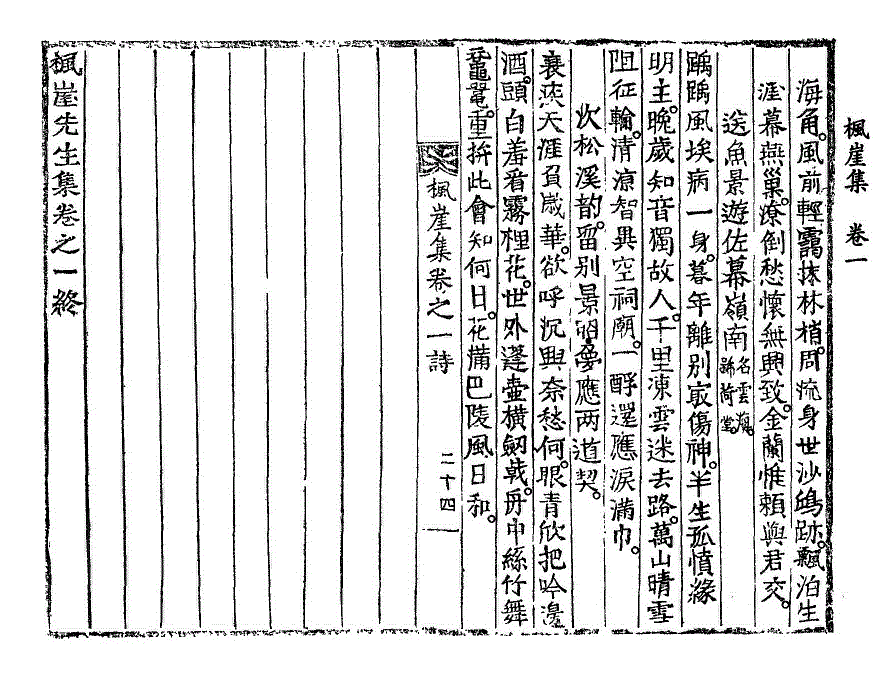 楓崖集　卷一
海角。風前輕靄抹林梢。周流身世沙鴻跡。飄泊生
涯幕燕巢。潦倒愁懷無興致。金蘭惟賴與君交。
送魚景遊佐幕嶺南名雲瀰號荷堂
踽踽風埃病一身。暮年離別最傷神。半生孤憤緣
明主。晩歲知音獨故人。千里凍雲迷去路。萬山晴雪
阻征輪。淸凉智異空祠廟。一酹還應淚滿巾。
次松溪韵。留別景昭夢應两道契。
衰疾天涯負歲華。欲呼沉興奈愁何。眼靑欣把吟邊
酒。頭白羞看霧裡花。世外蓬壺橫劒戟。舟中絲竹舞
黿鼉。重拚此會知何日。花滿巴陵風日和。
楓崖集卷之一詩
二十四
楓崖先生集卷之一終